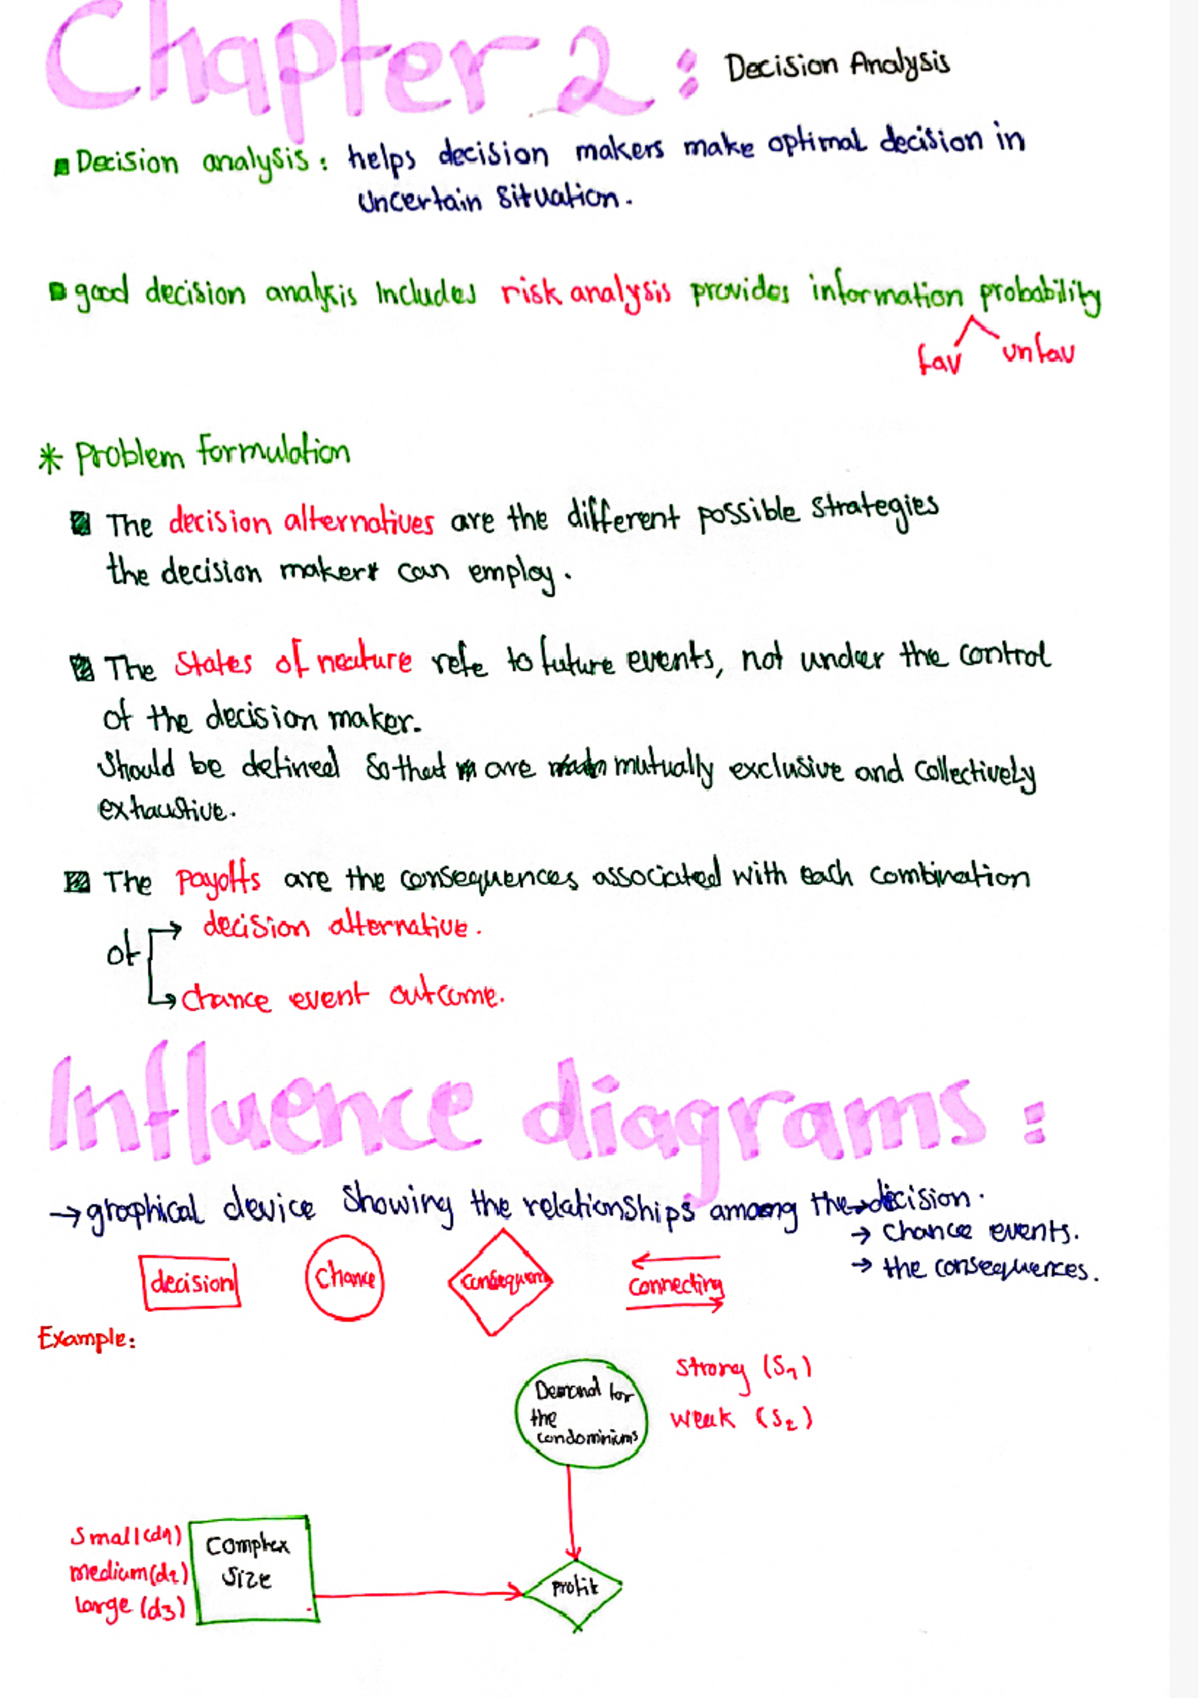 Chapter 2 : Decision Analysis
Decision analysis : helps decision makers make optimal decision in
uncertain situation.
good decision analysis includes risk analysis provides information probability
fav unfav
* Problem formulation
The decision alternatives are the different possible strategies
the decision maker can employ.
The states of nature refe to future events, not under the control
of the decision maker.
Should be defined so that are mutually exclusive and collectively
exhaustive.
The payoffs are the consequences associated with each combination
of → decision alternative.
→ chance event outcome.
Influence diagrams :
→ graphical device showing the relationships among the → decision.
→ chance events.
→ the consequences.
decision chance consequence connecting
Example:
Demand for
the
condominiums
strong (S1)
weak (S2)
Small (d1)
medium (d2)
large (d3)
Complex
size
profit